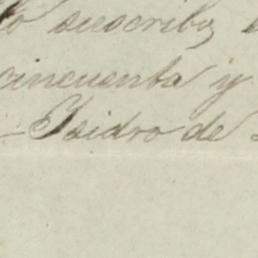 lo suscribo,
cincuenta y
Isidro de